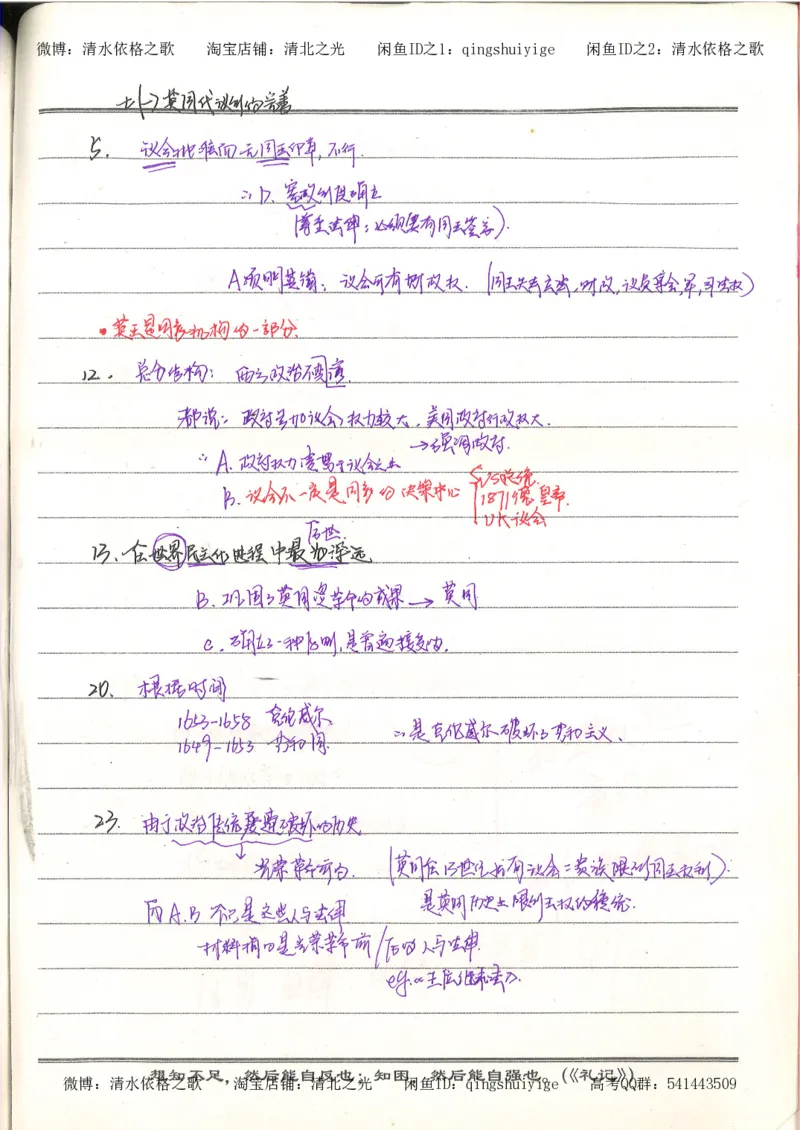 微博：清水依格之歌 淘宝店铺：清北之光 闲鱼ID之1：qingshuiyige 闲鱼ID之2：清水依格之歌
七(一)英国代议制的完善
5. 议会批准而无国王印章，不行.
∴D. 宪政制度确立
(尊重法律：必须要有国王签名).
A项明显错：议会已有财政权. (国王失去立法，财政，议员，军，司法权)
•英王是国家机构的一部分.
12. 总分结构：西方政治不
都说：政府参加议会，权力较大，美国政府行政权大.
→强调政府.
∵A. 政府权力凌驾于议会之上
B. 议会不一定是国家的决策中心 US总统
1871德皇帝.
UK议会
后世
13. 在世界民主化进程中最为深远
B. 巩固了英国资革命的成果→英国
C. 确立了一种原则，是普遍接受的.
20. 根据时间
1653-1658 克伦威尔
1649-1653 共和国.
∴是克伦威尔破坏了共和主义.
23. 由于政治传统屡遭破坏的历史
↓
光荣革命前的. (英国在13世纪出现议会=贵族限制国王权利).
是英国历史上限制王权的传统.
而A.B 不只是这些人与法律
材料指的是光荣革命前/后的人与法律.
eg.《王位继承法》.
想知不足，然后能自反也；知困，然后能自强也。(《礼记》)
微博：清水依格之歌 淘宝店铺：清北之光 闲鱼ID：qingshuiyige 高考QQ群：541443509